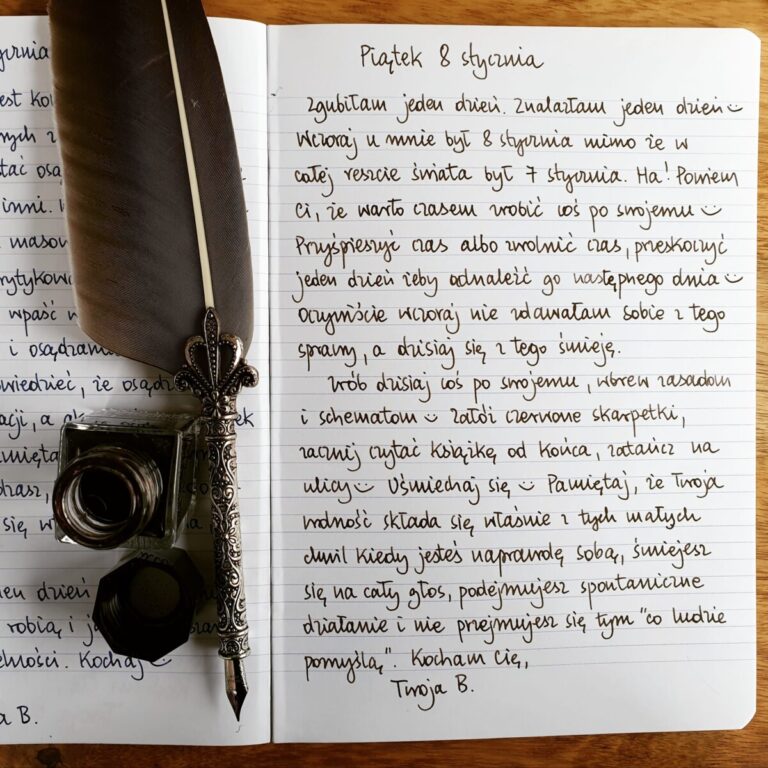 est
nych z
tać
inni.
wpaść w
i
że
acji, a
się w
dzień
robią, i
Kochaj
B.
Piątek 8 stycznia
Zgubiłam jeden dzień. Znalazłam jeden dzień☺
Wczoraj u mnie był 8 stycznia mimo że w
całej reszcie świata był 7 stycznia. Ha! Powiem
Ci, że warto czasem zrobić coś po swojemu ☺
Przyśpieszyć czas albo zwolnić czas, przeskoczyć
jeden dzień żeby odnaleźć go następnego dnia☺
Oczywiście wczoraj nie zdawałam sobie z tego
sprawy, a dzisiaj się z tego śmieję.
Zrób dzisiaj coś po swojemu, wbrew zasadom
i schematom ☺ Załóż czerwone skarpetki,
zacznij czytać książkę od końca, zatańcz na
ulicy☺ Uśmiechaj się ☺ Pamiętaj, że Twoja
wolność składa się właśnie z tych małych
chwil kiedy jesteś naprawdę sobą, śmiejesz
się na cały głos, podejmujesz spontaniczne
działanie i nie przejmujesz się tym "co ludzie
pomyślą". Kocham Cię,
Twoja B.